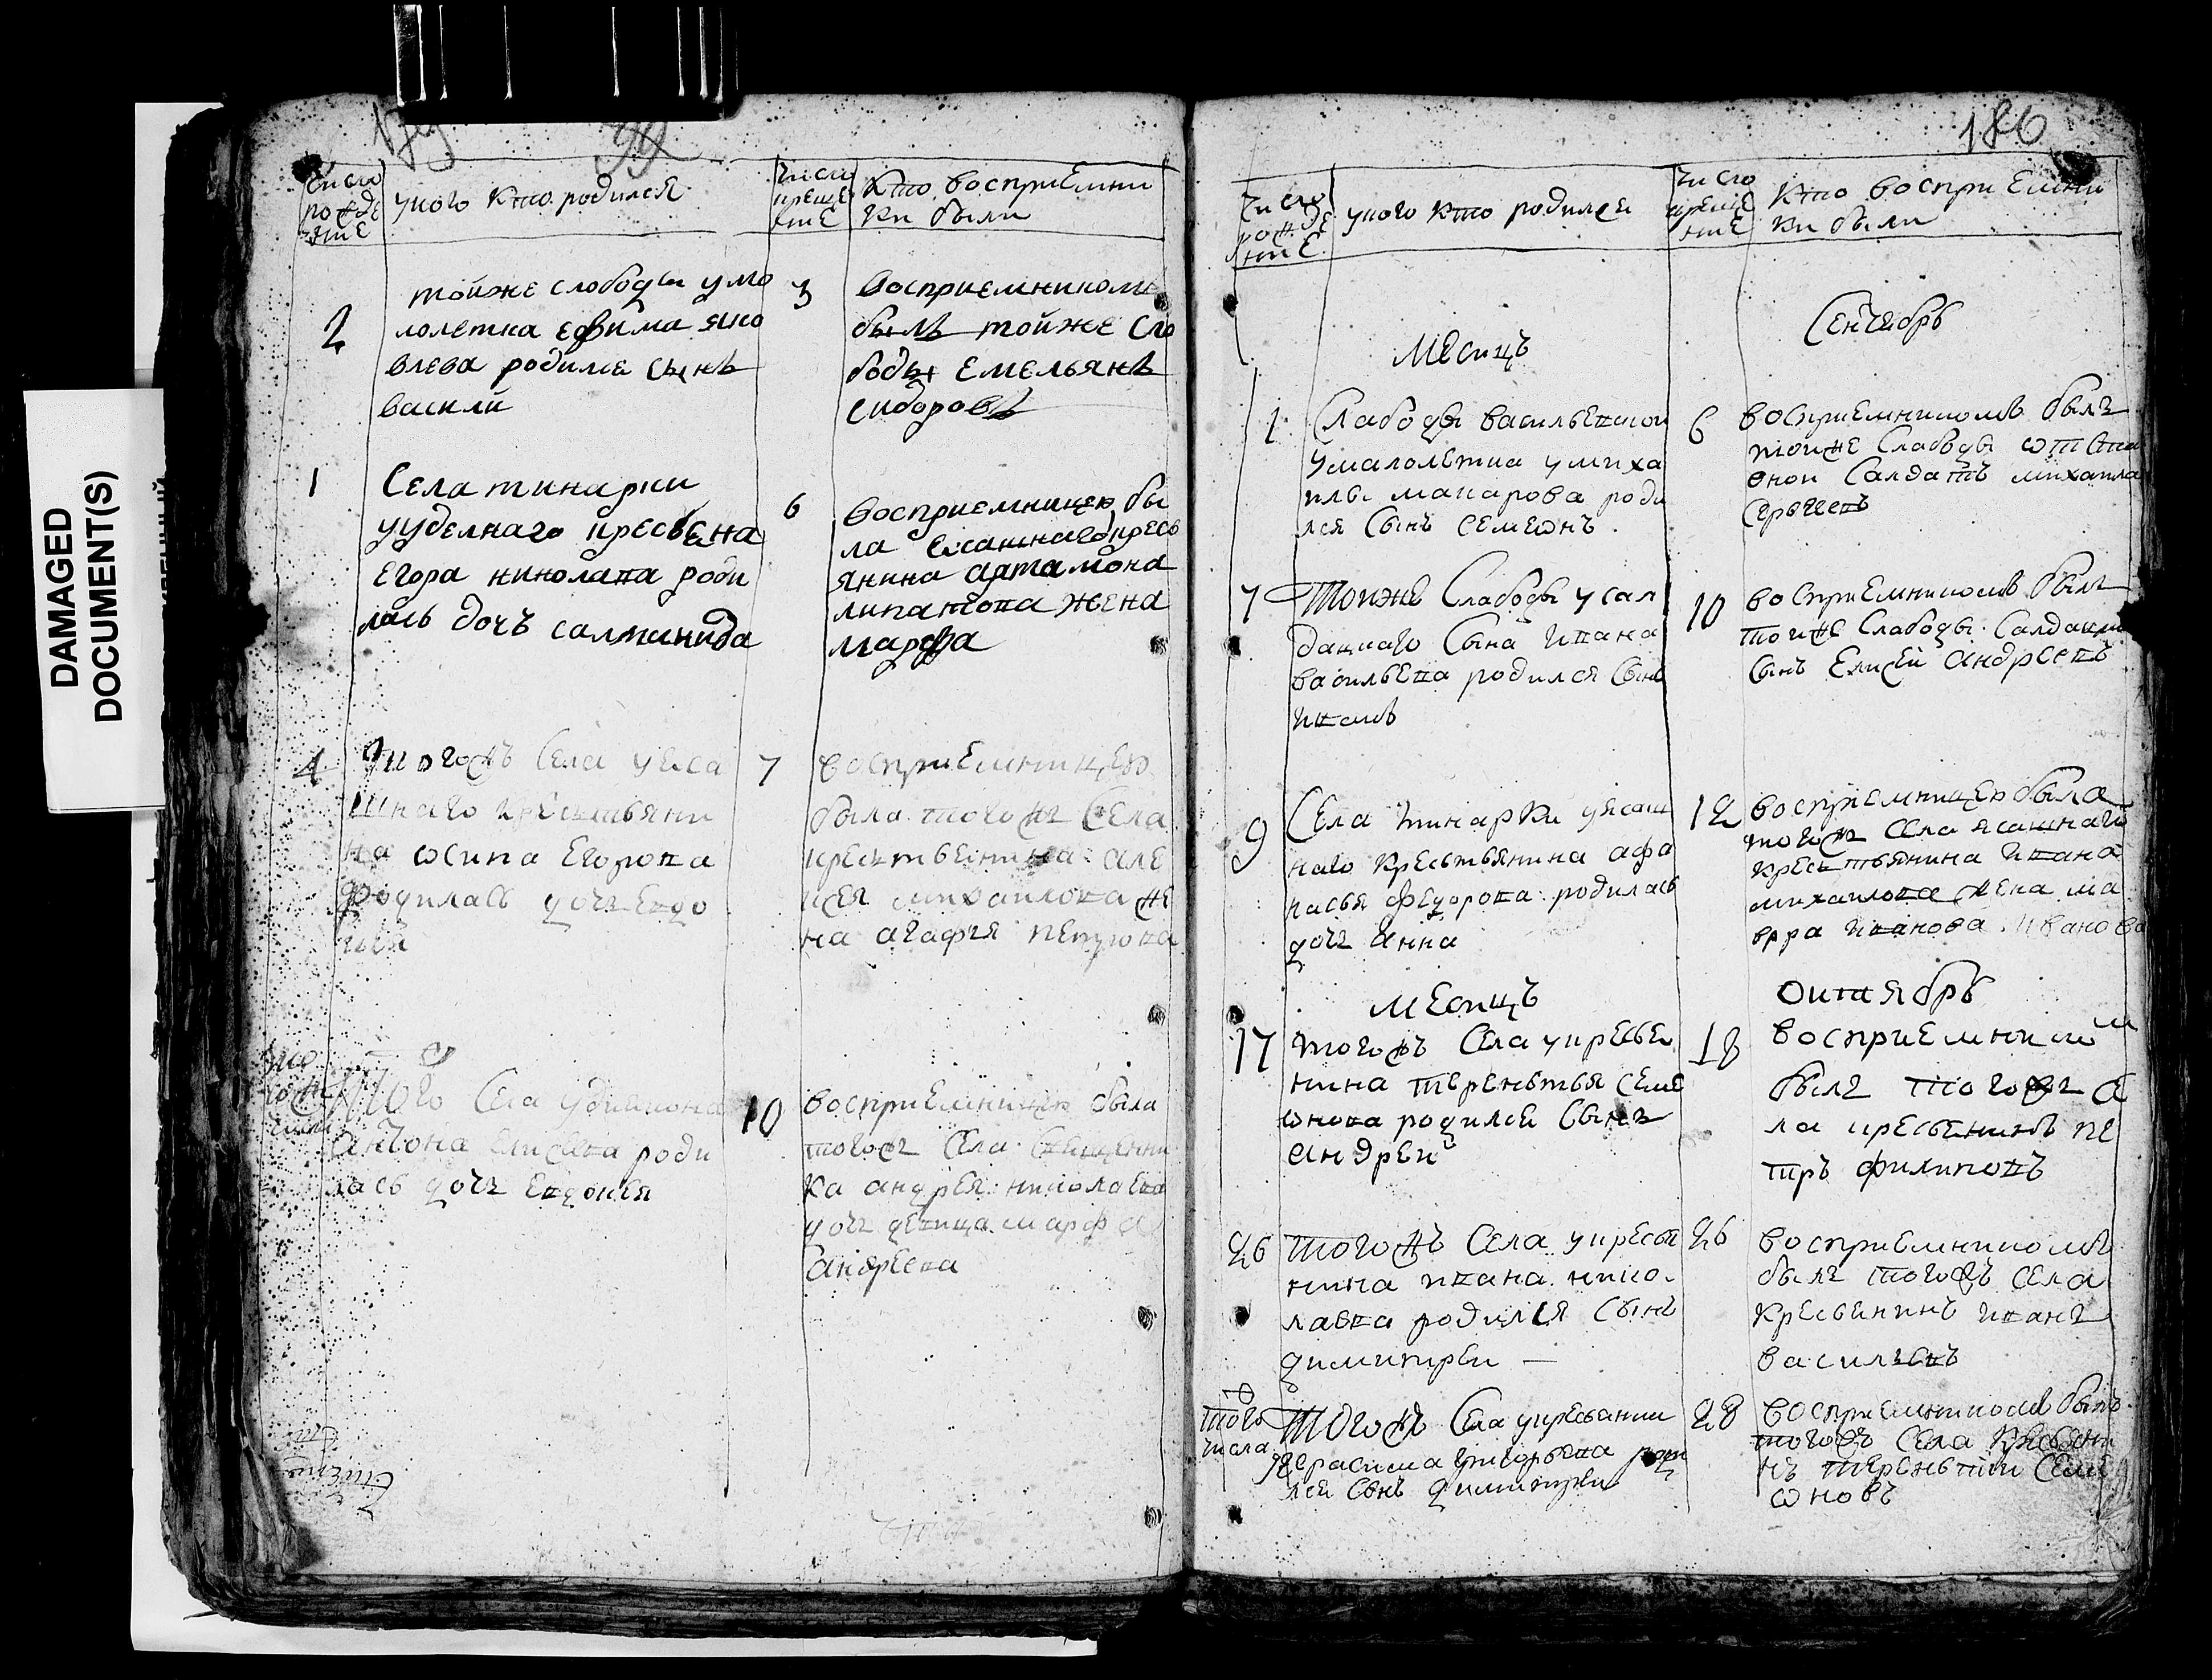 DAMAGED
DOCUMENT(S)
179
99
число рожде ние
у кого кто родился
число креще ние
кто восприемни
ки были
2
тойже слободы у мо
лолетка ефима яко
влева родился сынъ
василий
3
восприемникомъ
былъ тойже сло
боды емельянъ
сидоровъ
1
Села тинарки
у уделнаго кресьена
Егора николава роди
лась дочъ салманида
6
восприемницею бы
ла ясашнаго кресь
янина артамона
липатова жена
марфа
4
Тогожъ Села у яса
шнаго крестьяни
на осипа Егорова
родилась дочь Евдо
кея
7
восприемницею
была тогожъ Села
крестьенина алe
ксея михаилова же
на агафия петрова
того Села у дьякона
антона елисева роди
лась дочь Евдокея
10
восприемницею была
тогожъ Села священни
ка андрея николаева
дочь девица марфа
андреева
186
число рожде ние
у кого кто родился
число креще ние
кто восприемни
ки были
Месяцъ
Сентябрь
1
Слабоды васильевской
у малолетка у миха
илы макарова роди
лся сынъ семионъ
6
восприемникомъ былъ
тойже Слабоды отста
вной Салдатъ михаила
сергеевъ
7
Тойже Слабоды у сал
дацкаго сына ивана
васильева родился сынъ
иванъ
10
восприемникомъ былъ
тойже Слабоды Салдацкой
сынъ Елисей андреевъ
9
Села тинарки у ясаш
наго крестьянина афа
насья федорова родилась
дочь анна
12
восприемницею была
тогожъ Села ясашнаго
крестьянина ивана
михаилова жена ма
вра иванова иванова
Месяцъ
октябрь
17
тогожъ Села у кресьe
нина терентья семе
онова родился сынъ
андрей
18
восприемником
былъ тогожъ се
ла кресьенинъ пе
тръ филиповъ
26
тогожъ Села у кресья
нина ивана нико
лаева родился сынъ
димитрей
26
восприемникомъ
былъ тогожъ Села
кресьенинъ иванъ
васильевъ
того числа
Тогожъ Села у кресьянина
герасима григорьева роди
лся сынъ димитрей
28
восприемникомъ былъ
тогожъ Села кресьени
нъ терентий семе
оновъ